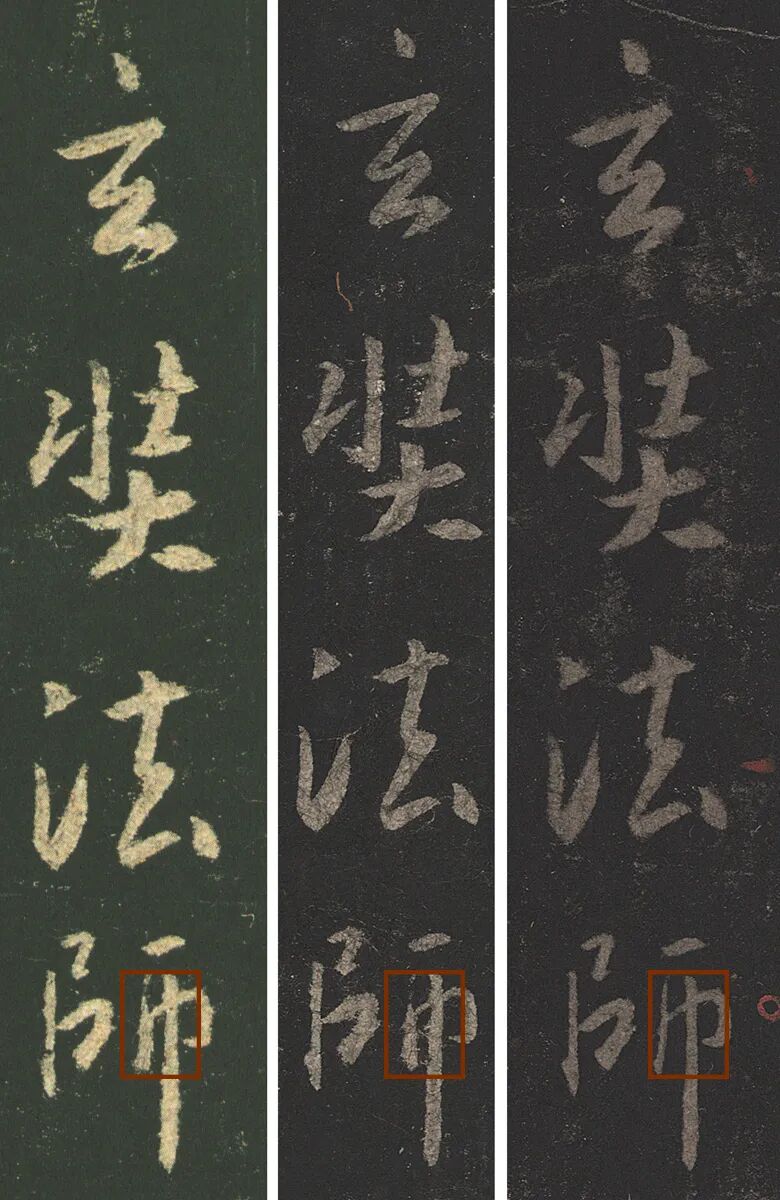 玄奘法師
玄奘法師
玄奘法師